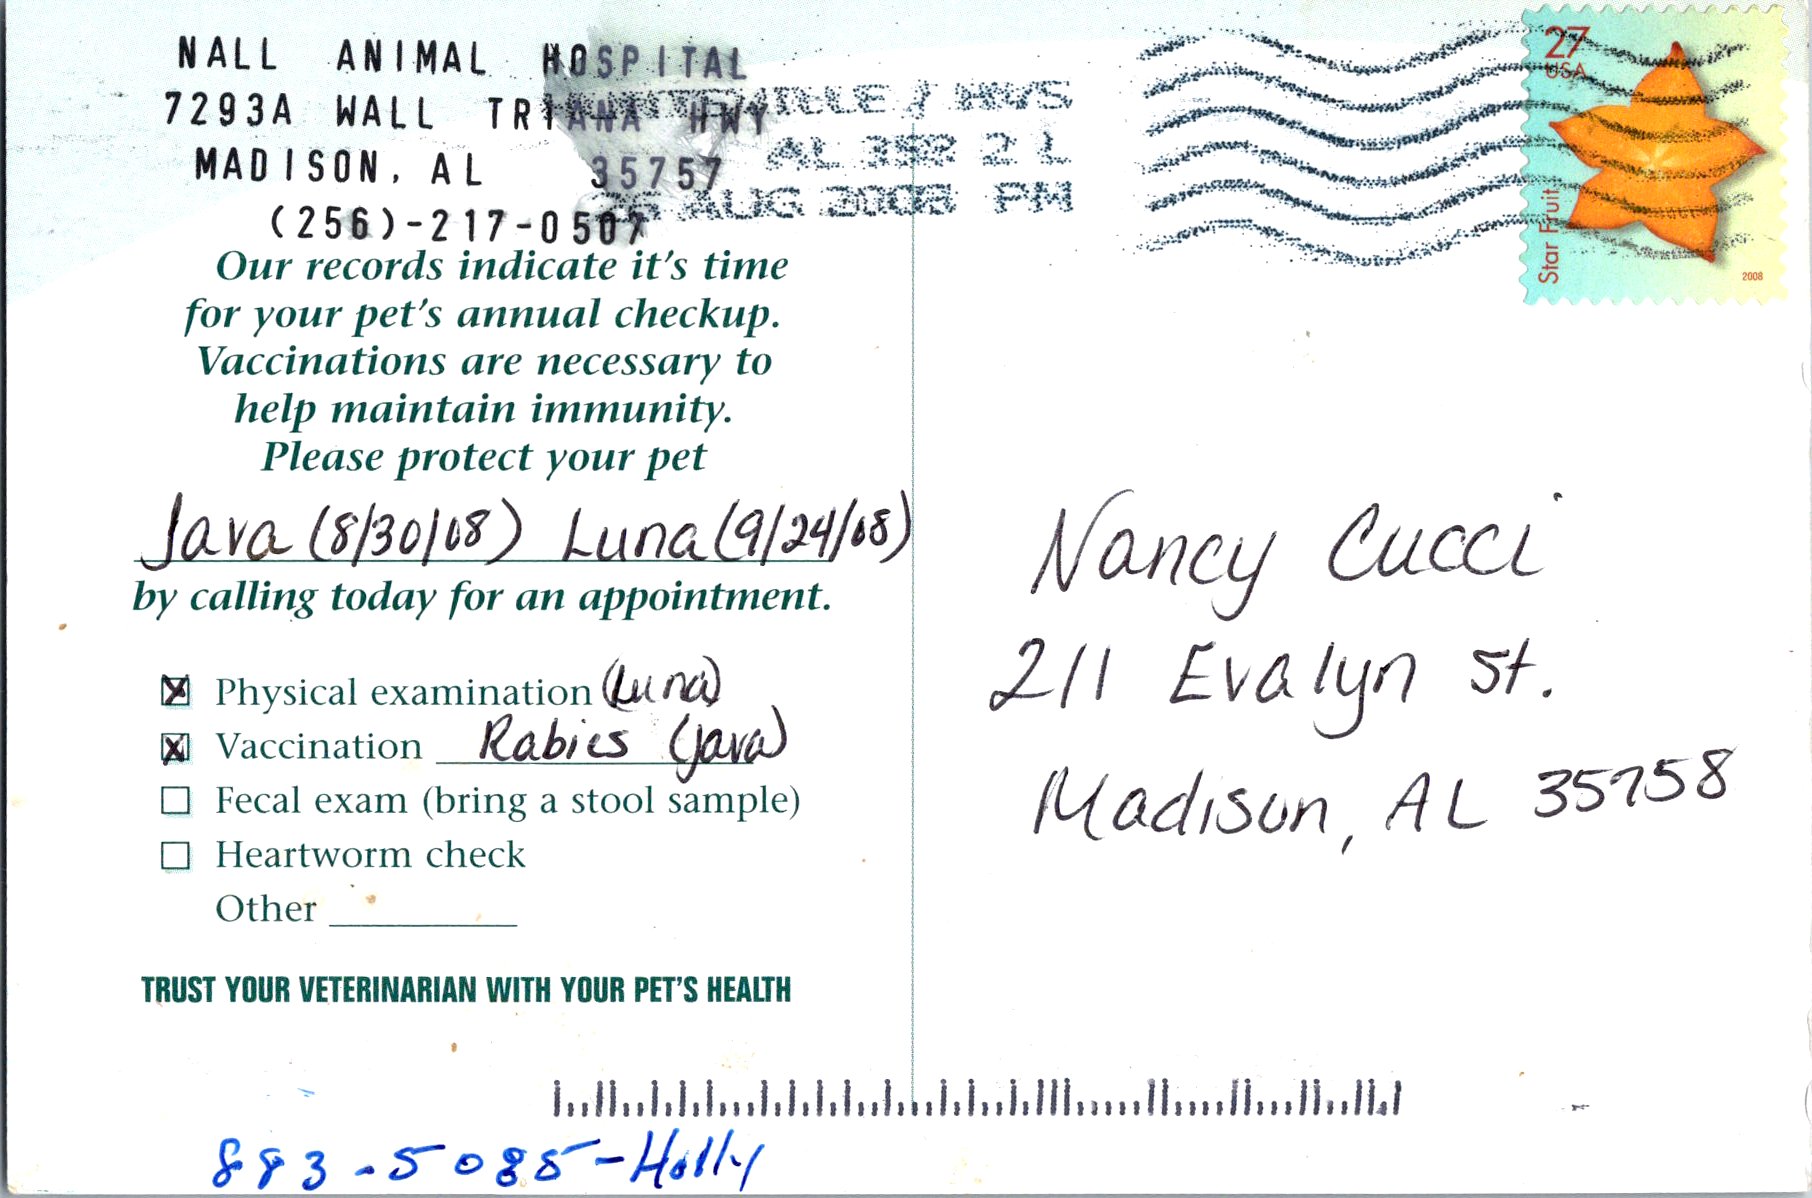 NALL ANIMAL HOSPITAL
7293A WALL TRIANA HWY
MADISON, AL 35757
(256)-217-0507
AUG 2008 PM
27
USA
Star Fruit
2008
Our records indicate it's time
for your pet's annual checkup.
Vaccinations are necessary to
help maintain immunity.
Please protect your pet
Java (8/30/08) Luna (9/24/08)
by calling today for an appointment.
Physical examination (Luna)
Vaccination Rabies (Java)
Fecal exam (bring a stool sample)
Heartworm check
Other
TRUST YOUR VETERINARIAN WITH YOUR PET'S HEALTH
Nancy Cucci
211 Evalyn St.
Madison, AL 35758
883-5085-Holly